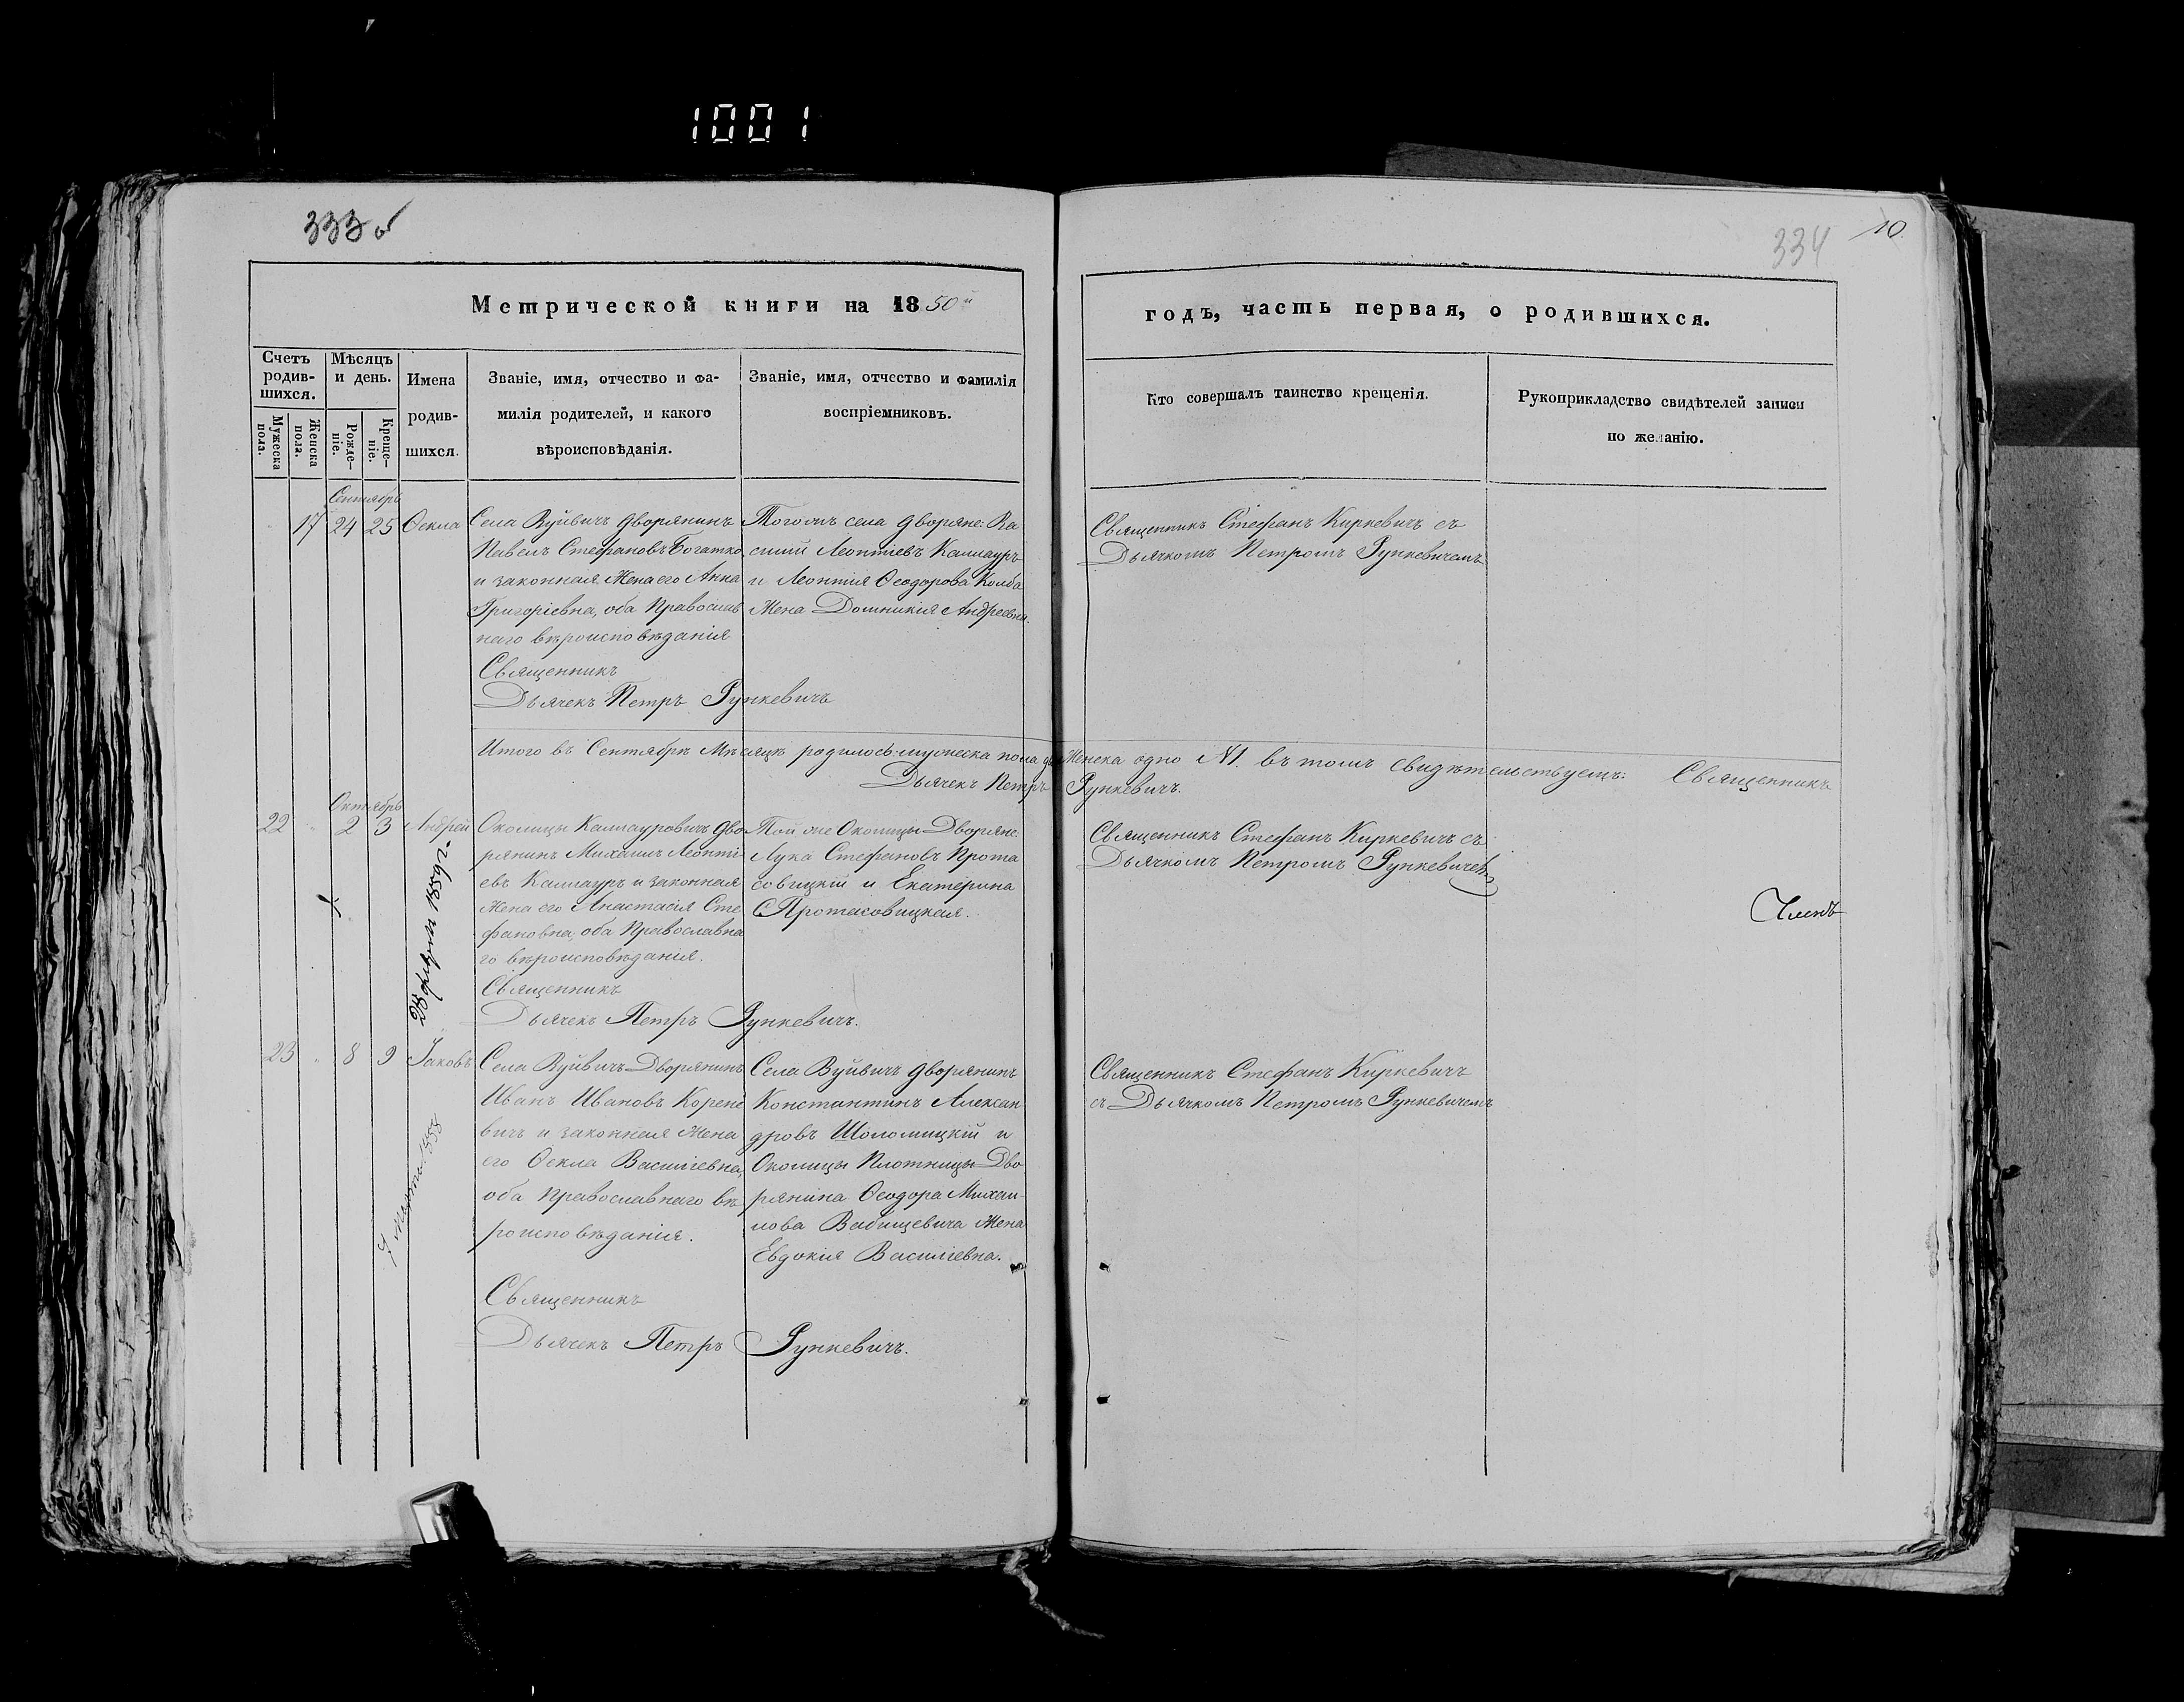 1001
333 об
334
10
Метрической книги на 1850й
годъ, часть первая, о родившихся.
Счетъ родив-шихся.
Мужеска пола.
Женска пола.
Мѣсяцъ и день.
Рожде-ніе.
Креще-ніе.
Имена
родив-
шихся.
Званіе, имя, отчество и фа-
милія родителей, и какого
вѣроисповѣданія.
Званіе, имя, отчество и фамилія
воспріемниковъ.
Кто совершалъ таинство крещенія.
Рукоприкладство свидѣтелей записи
по желанію.
Сентябрь
17 24 25 Ѳекла
Села Вуйвичъ Дворянинъ
Павелъ Стефановъ Богатко
и законная Жена его Анна
Григоріевна, оба Православ
наго вѣроисповѣданія
Священникъ
Дьячекъ Петръ Рункевичъ
Тогожъ села дворяне: Ва
силій Леонтіевъ Каллауръ
и Леонтія Ѳеодорова Колба
Жена Домникія Андреевна.
Священникъ Стефанъ Киркевичъ съ
Дьячкомъ Петромъ Рункевичемъ
Итого въ Сентябрѣ Мѣсяцѣ родилось: мужеска пола Женска одно №1. въ томъ свидѣтельствуемъ: Священникъ
Дьячекъ Петръ Рункевичъ.
Октябрь
22 " 2 3 Андрей
28 1859 г.
Околицы Каллауровичъ Дво
рянинъ Михаилъ Леонті
евъ Каллауръ и законная
Жена его Анастасія Сте
фановна, оба Православна
го вѣроисповѣданія.
Священникъ
Дьячекъ Петръ Рункевичъ.
Той же Околицы Дворяне:
Лука Стефановъ Прота
совицкій и Екатерина
С. Протасовицкая.
Священникъ Стефанъ Киркевичъ съ
Дьячкомъ Петромъ Рункевичемъ
Членъ
23 " 8 9 Іаковъ
7 марта 1858
Села Вуйвичъ Дворянинъ
Иванъ Ивановъ Корене
вичъ и законная Жена
его Ѳекла Василіевна,
оба Православнаго вѣ
роисповѣданія.
Священникъ
Дьячекъ Петръ Рункевичъ.
Села Вуйвичъ Дворянинъ
Константинъ Алексан
дровъ Шоломицкій и
Околицы Плотницы Дво
рянина Ѳеодора Михаи-
лова Вабищевича Жена
Евдокія Василіевна.
Священникъ Стефанъ Киркевичъ
съ Дьячкомъ Петромъ Рункевичемъ